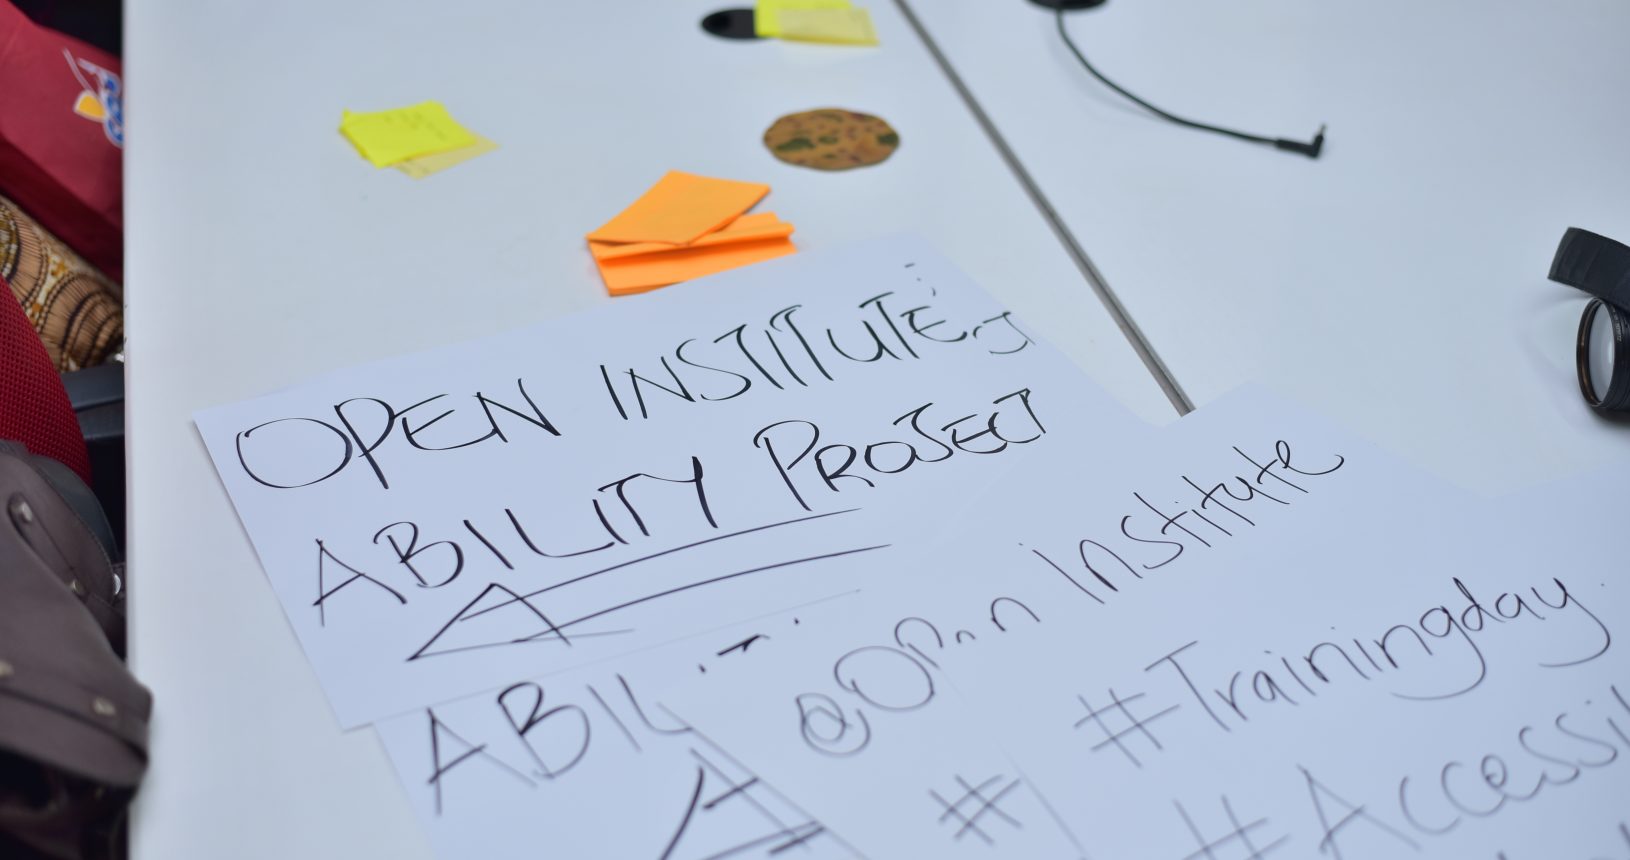 OPEN INSTITUTE
ABILITY PROJECT
A
ABIL
A
@Open Institute
#
#Trainingday
#Accessi